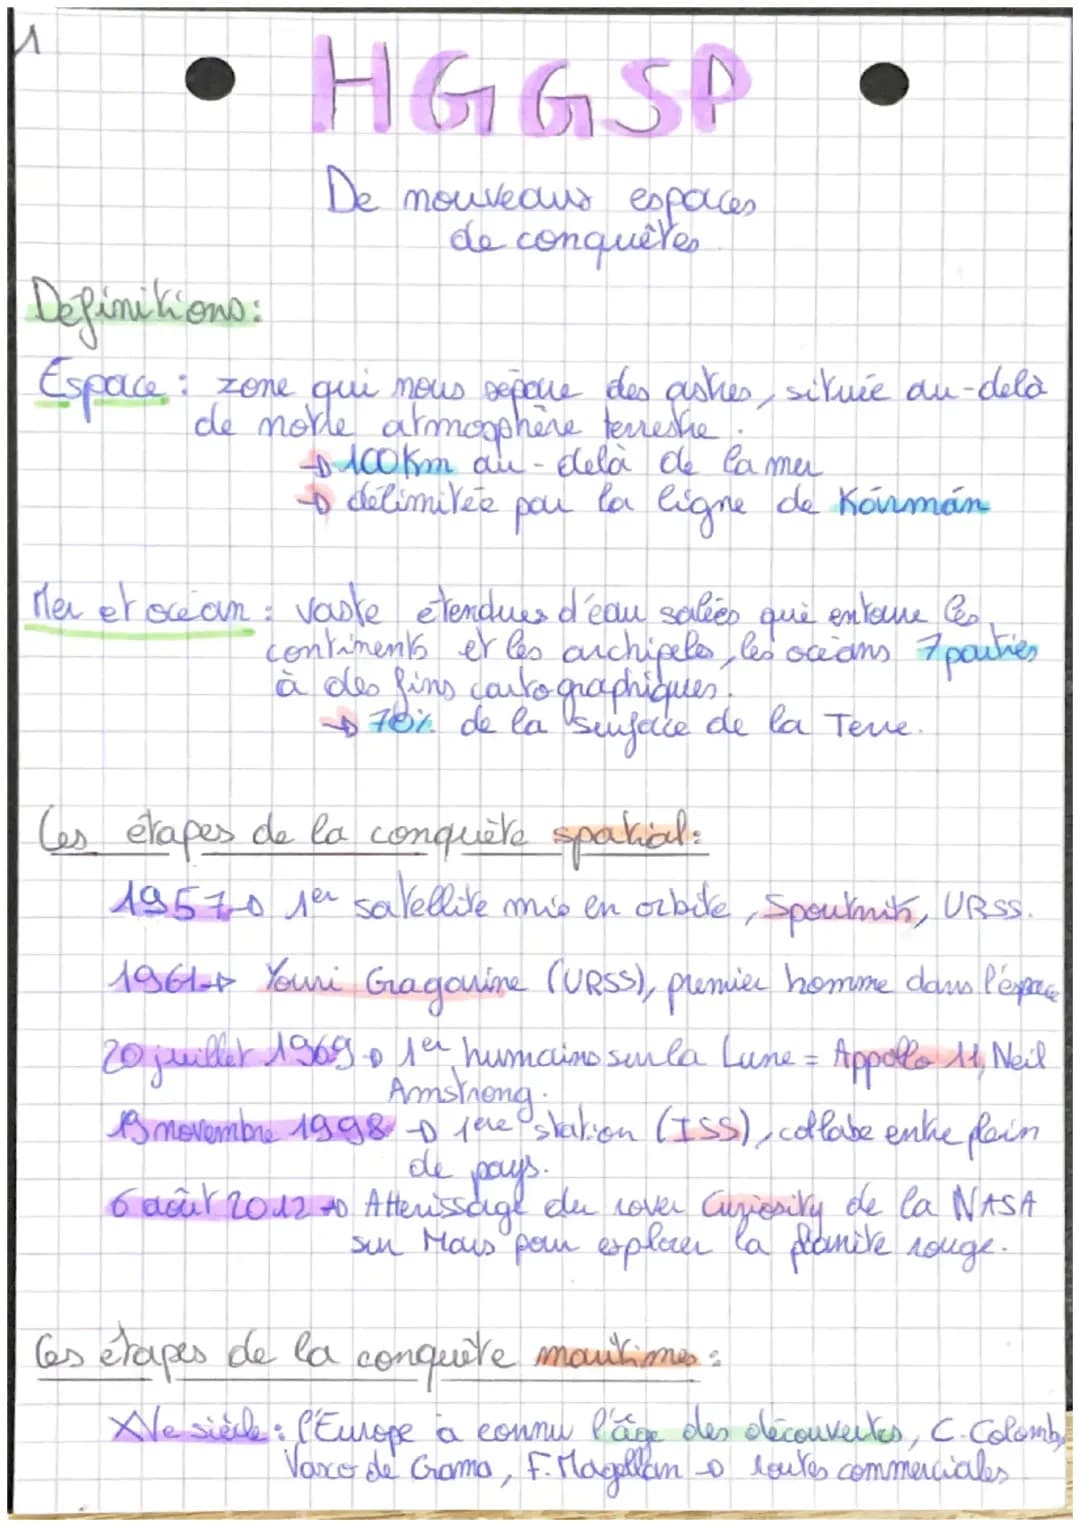 1
HGGSP
De nouveaux espaces
de conquêtes
Définitions:
Espace : zone qui nous sépare des astres, située au-delà
de notre atmosphère terrestre.
→ 100km au-delà de la mer
→ délimitée par la ligne de Kármán
Mer et océan : vaste étendues d'eau salées qui entoure les
continents et les archipeles, les océans 7 parties
à des fins cartographiques.
→ 70% de la surface de la Terre.
Les étapes de la conquête spatial:
1957 → 1er satellite mis en orbite, Spoutnik, URSS.
1961 → Youri Gragarine (URSS), premier homme dans l'espace
20 juillet 1969 → 1er humains sur la Lune = Appollo 11, Neil
Amstrong.
19 novembre 1998 → 1ère station (ISS), collabe entre plein
de pays.
6 août 2012 → Atterissage du rover Curiosity de la NASA
sur Mars pour explorer la planète rouge.
Les étapes de la conquête maritimes :
XVe siècle : l'Europe a connu l'âge des découvertes, C. Colomb,
Vasco de Gama, F. Magellan → routes commerciales